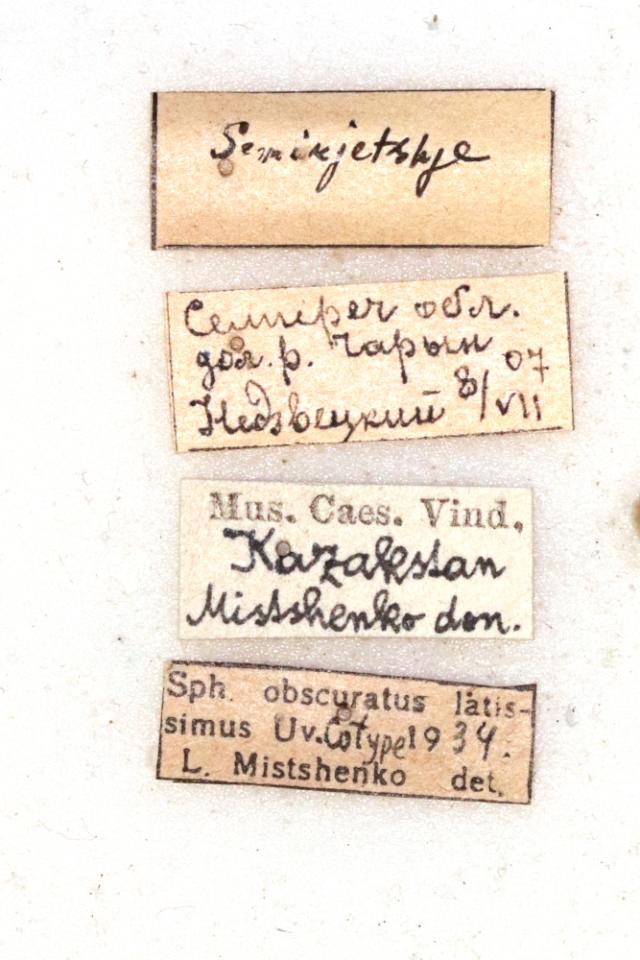 Semirjetshje
Семиреч обл.
дол. р. Чарын
Недзвецкий 8/VII 07
Mus. Caes. Vind.
Kazakstan
Mistshenko don.
Sph. obscuratus latis-
simus Uv. Cotype 1934.
L. Mistshenko det.